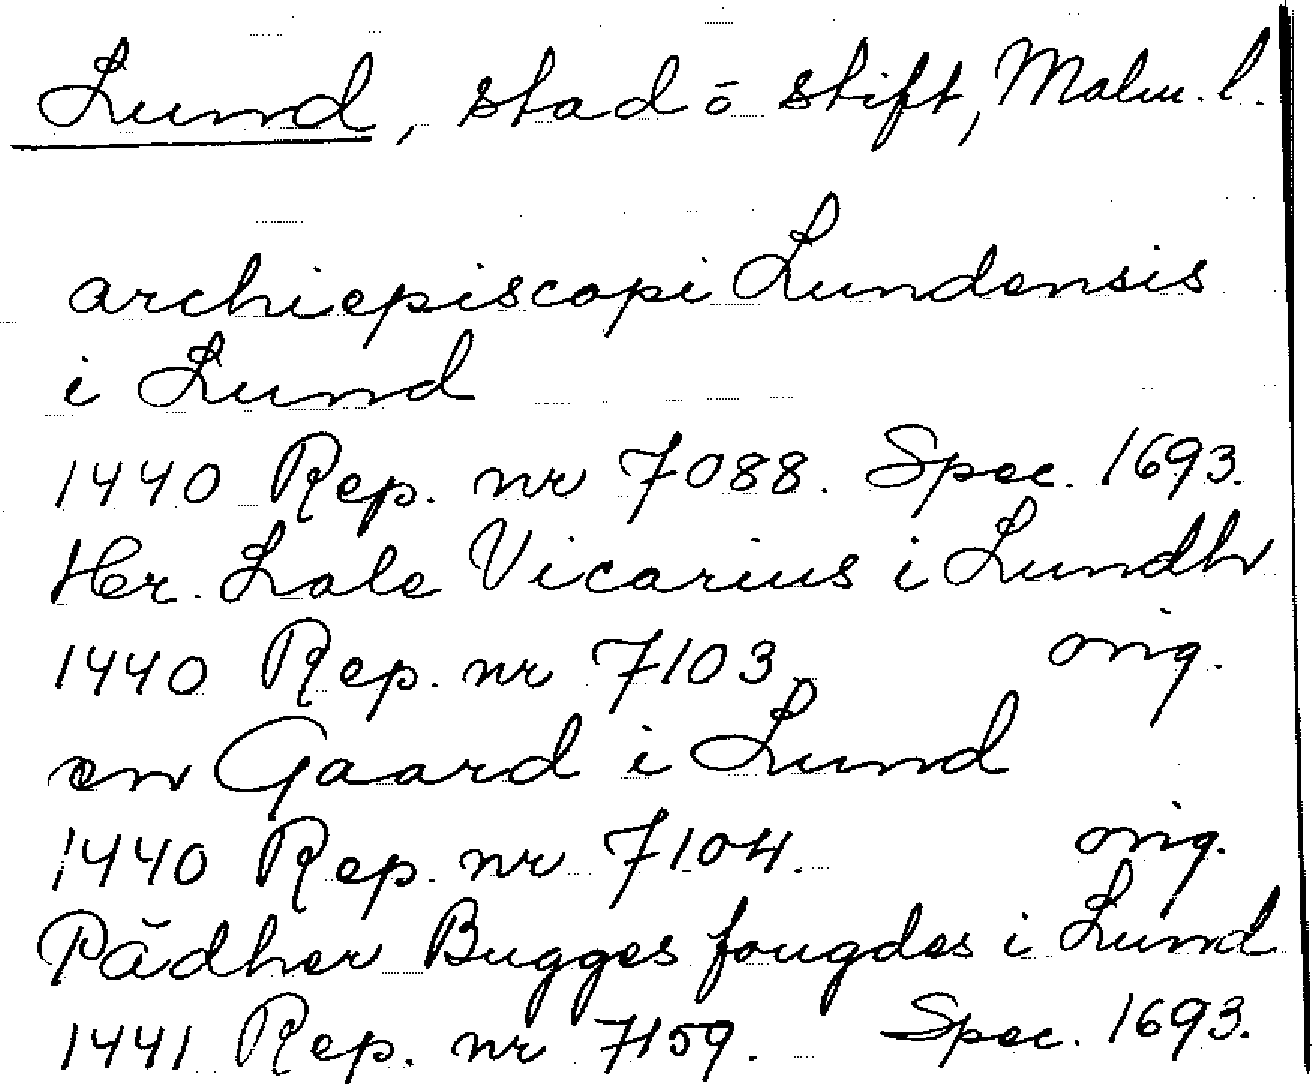 Lund, stad o stift, Malm. l.
archiepiscopi Lundensis
i Lund
1440 Rep. nr 7088. Spec. 1693.
Her. Lale Vicarius i Lundh
1440 Rep. nr 7103 orig.
en Gaard i Lund
1440 Rep. nr 7104. orig.
Pädher Bugges fougdes i Lund
1441 Rep. nr 7159. Spec. 1693.